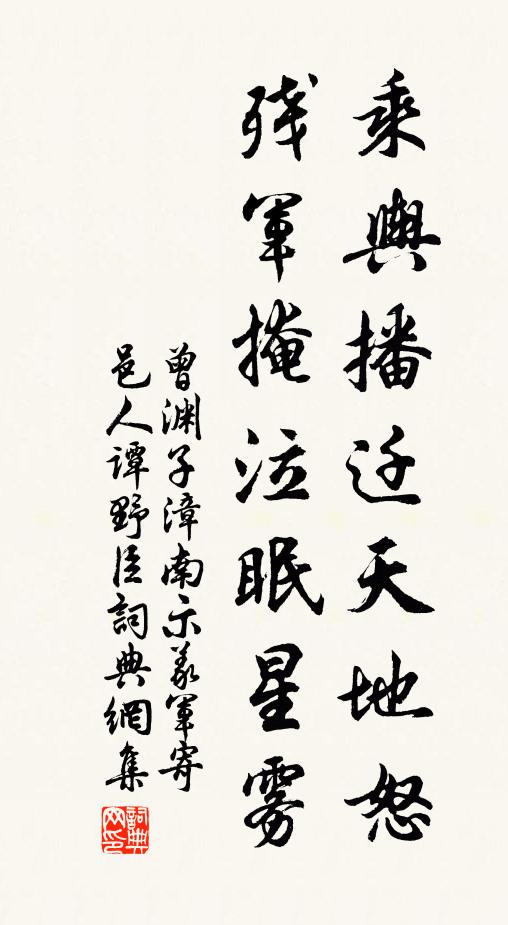 乘輿播迁天地怒
残軍掩泣眠星雾
曾渊子漳南示義軍寄
邑人谭野臣詞典網集
詞典网印